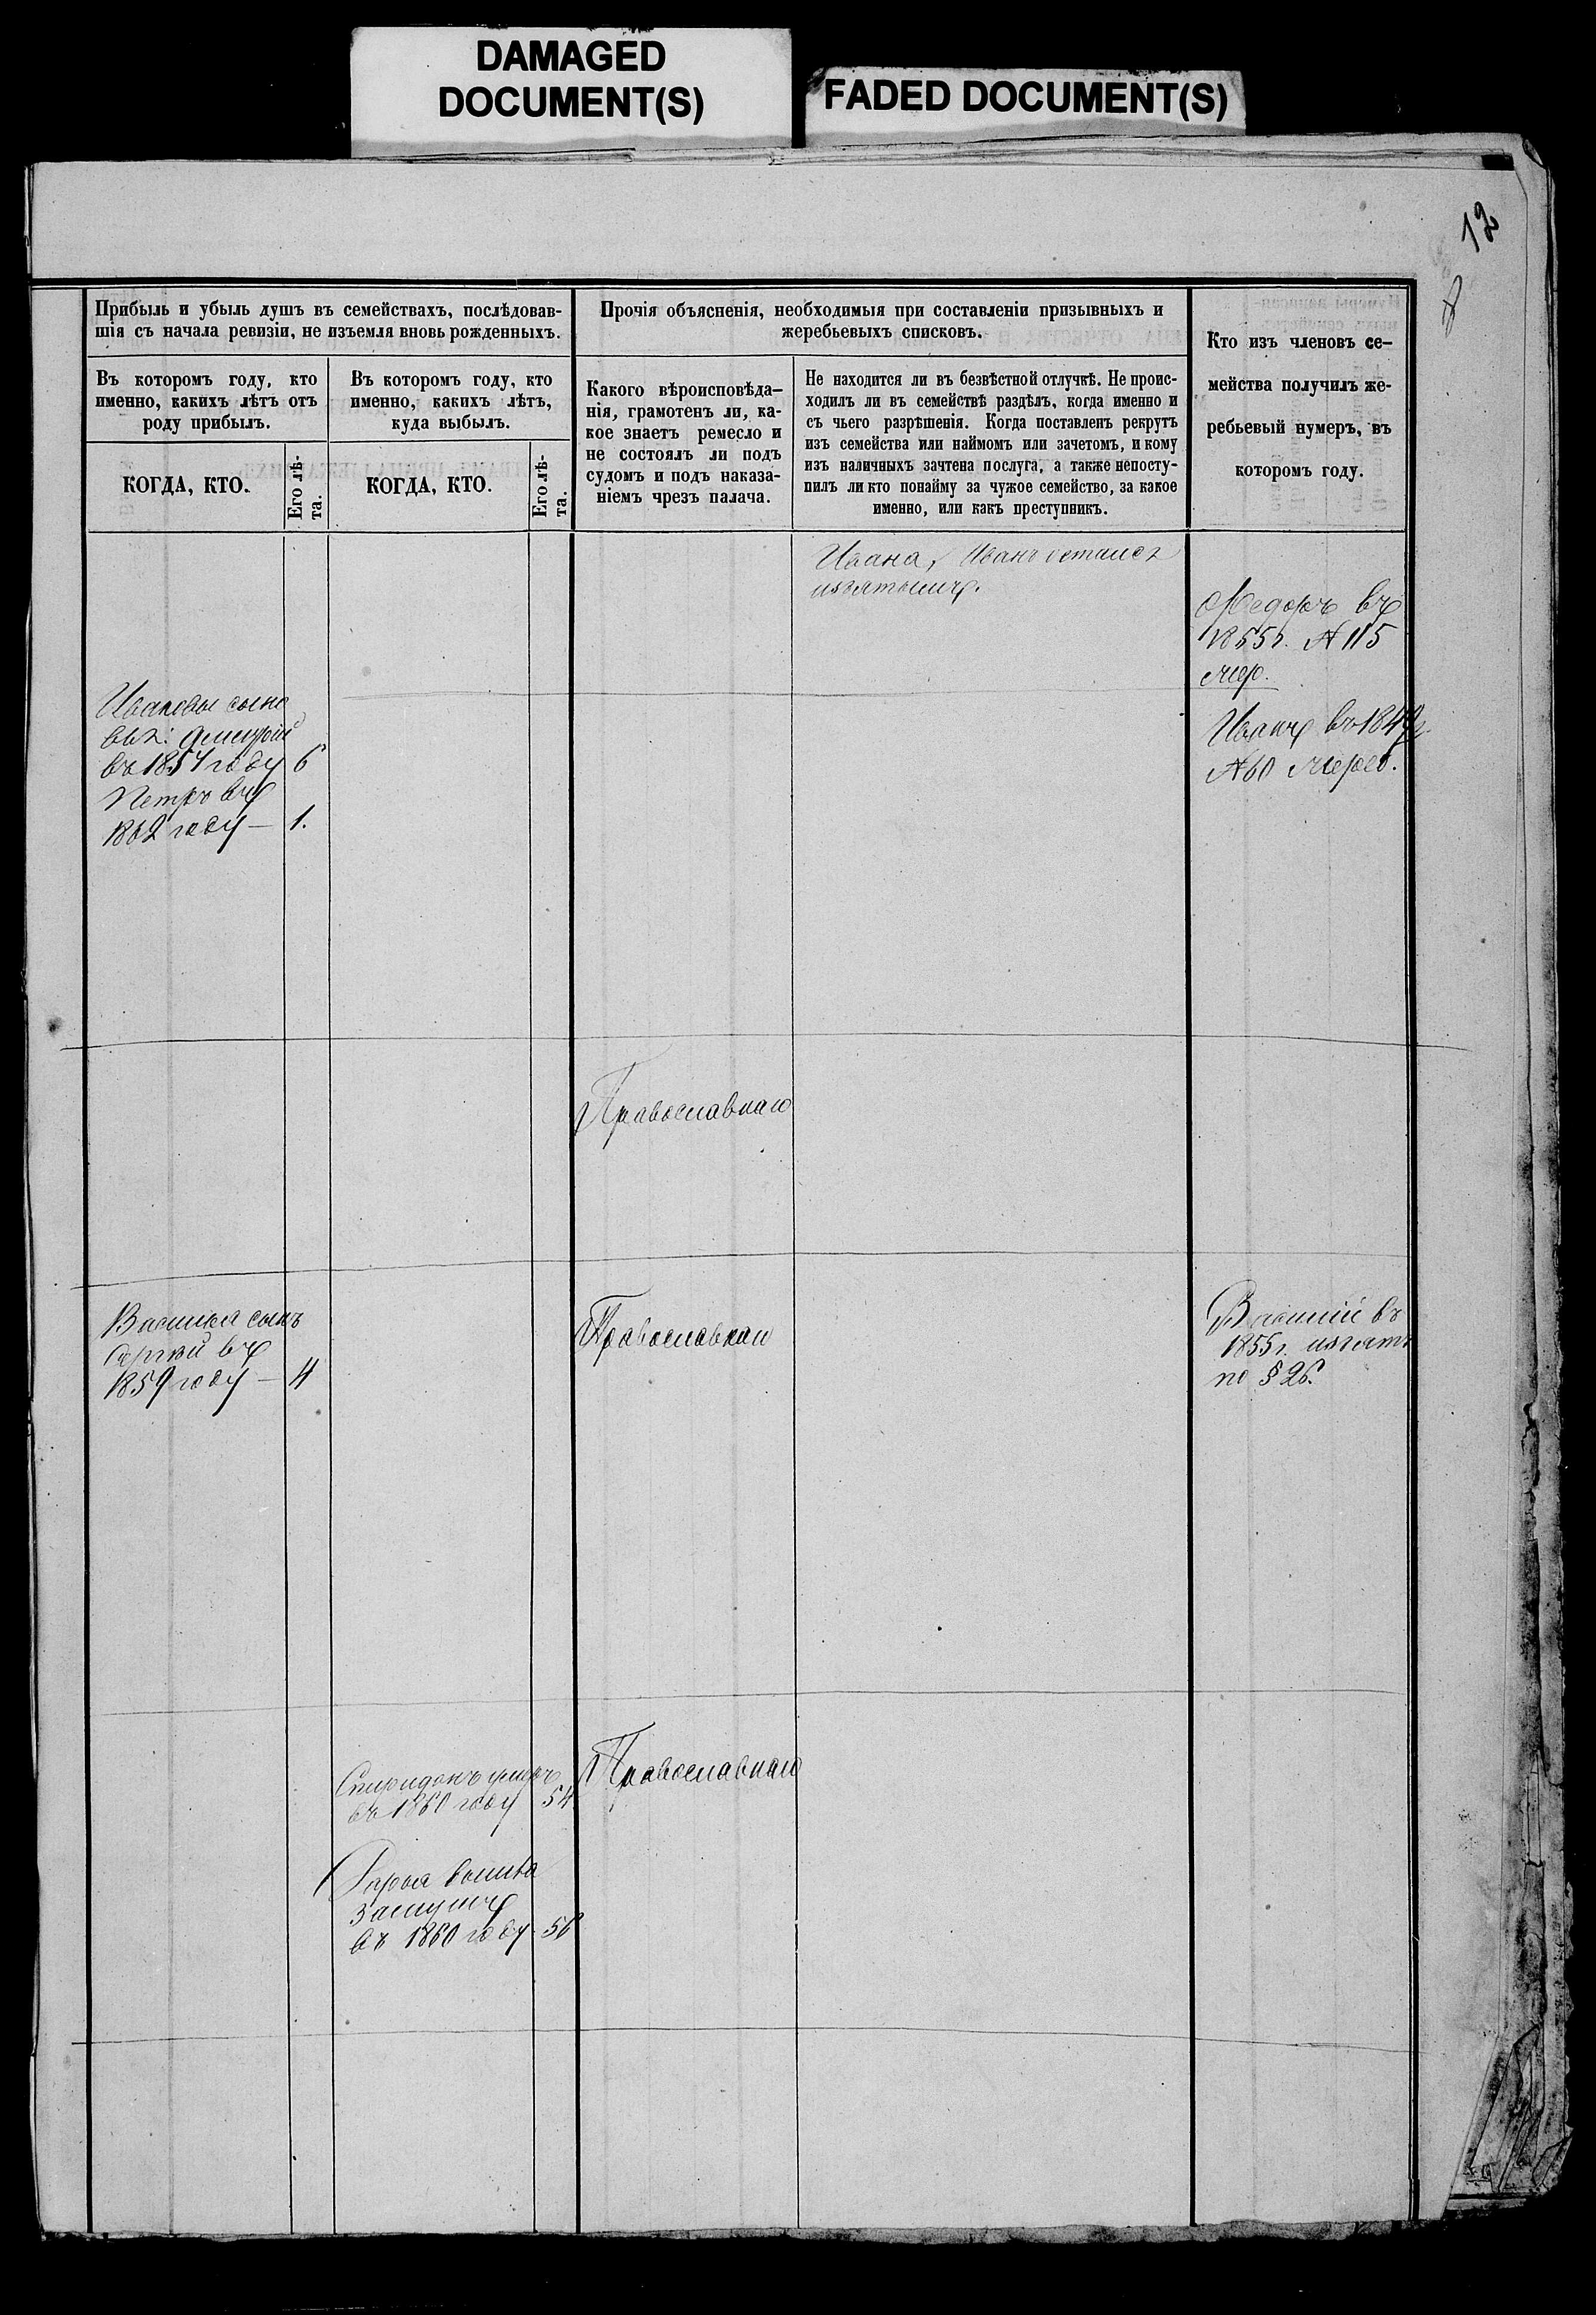 DAMAGED
DOCUMENT(S)
FADED DOCUMENT(S)
12
Прибыль и убыль душъ въ семействахъ, послѣдовав-
шія съ начала ревизіи, не изъемля вновь рожденныхъ.
Въ которомъ году, кто
именно, какихъ лѣтъ отъ
роду прибылъ.
КОГДА, КТО.
Его лѣ-
та.
Въ которомъ году, кто
именно, какихъ лѣтъ,
куда выбылъ.
КОГДА, КТО.
Его лѣ-
та.
Прочія объясненія, необходимыя при составленіи призывныхъ и
жеребьевыхъ списковъ.
Какого вѣроисповѣда-
нія, грамотенъ ли, ка-
кое знаетъ ремесло и
не состоялъ ли подъ
судомъ и подъ наказа-
ніемъ чрезъ палача.
Не находится ли въ безвѣстной отлучкѣ. Не проис-
ходилъ ли въ семействѣ раздѣлъ, когда именно и
съ чьего разрѣшенія. Когда поставленъ рекрутъ
изъ семейства или наймомъ или зачетомъ, и кому
изъ наличныхъ зачтена послуга, а также непосту-
пилъ ли кто понайму за чужое семейство, за какое
именно, или какъ преступникъ.
Кто изъ членовъ се-
мейства получилъ же-
ребьевый нумеръ, въ
которомъ году.
Ивана, Иванъ остался
изъятымъ.
Ѳедоръ въ
1855г. № 115
жер.
Ивановы сыно
вья: Дмитрій
въ 1857 году 6
Петръ въ
1862 году — 1.
Иванъ въ 1849г.
№ 60 жереб.
Православнаго
Василья сынъ
Сергѣй въ
1859 году — 4
Православнаго
Василій въ
1855г. изъятъ
по § 26.
Спиридонъ умеръ
въ 1860 году 54
Православнаго
Дарья вышла
замужъ
въ 1860 году 56